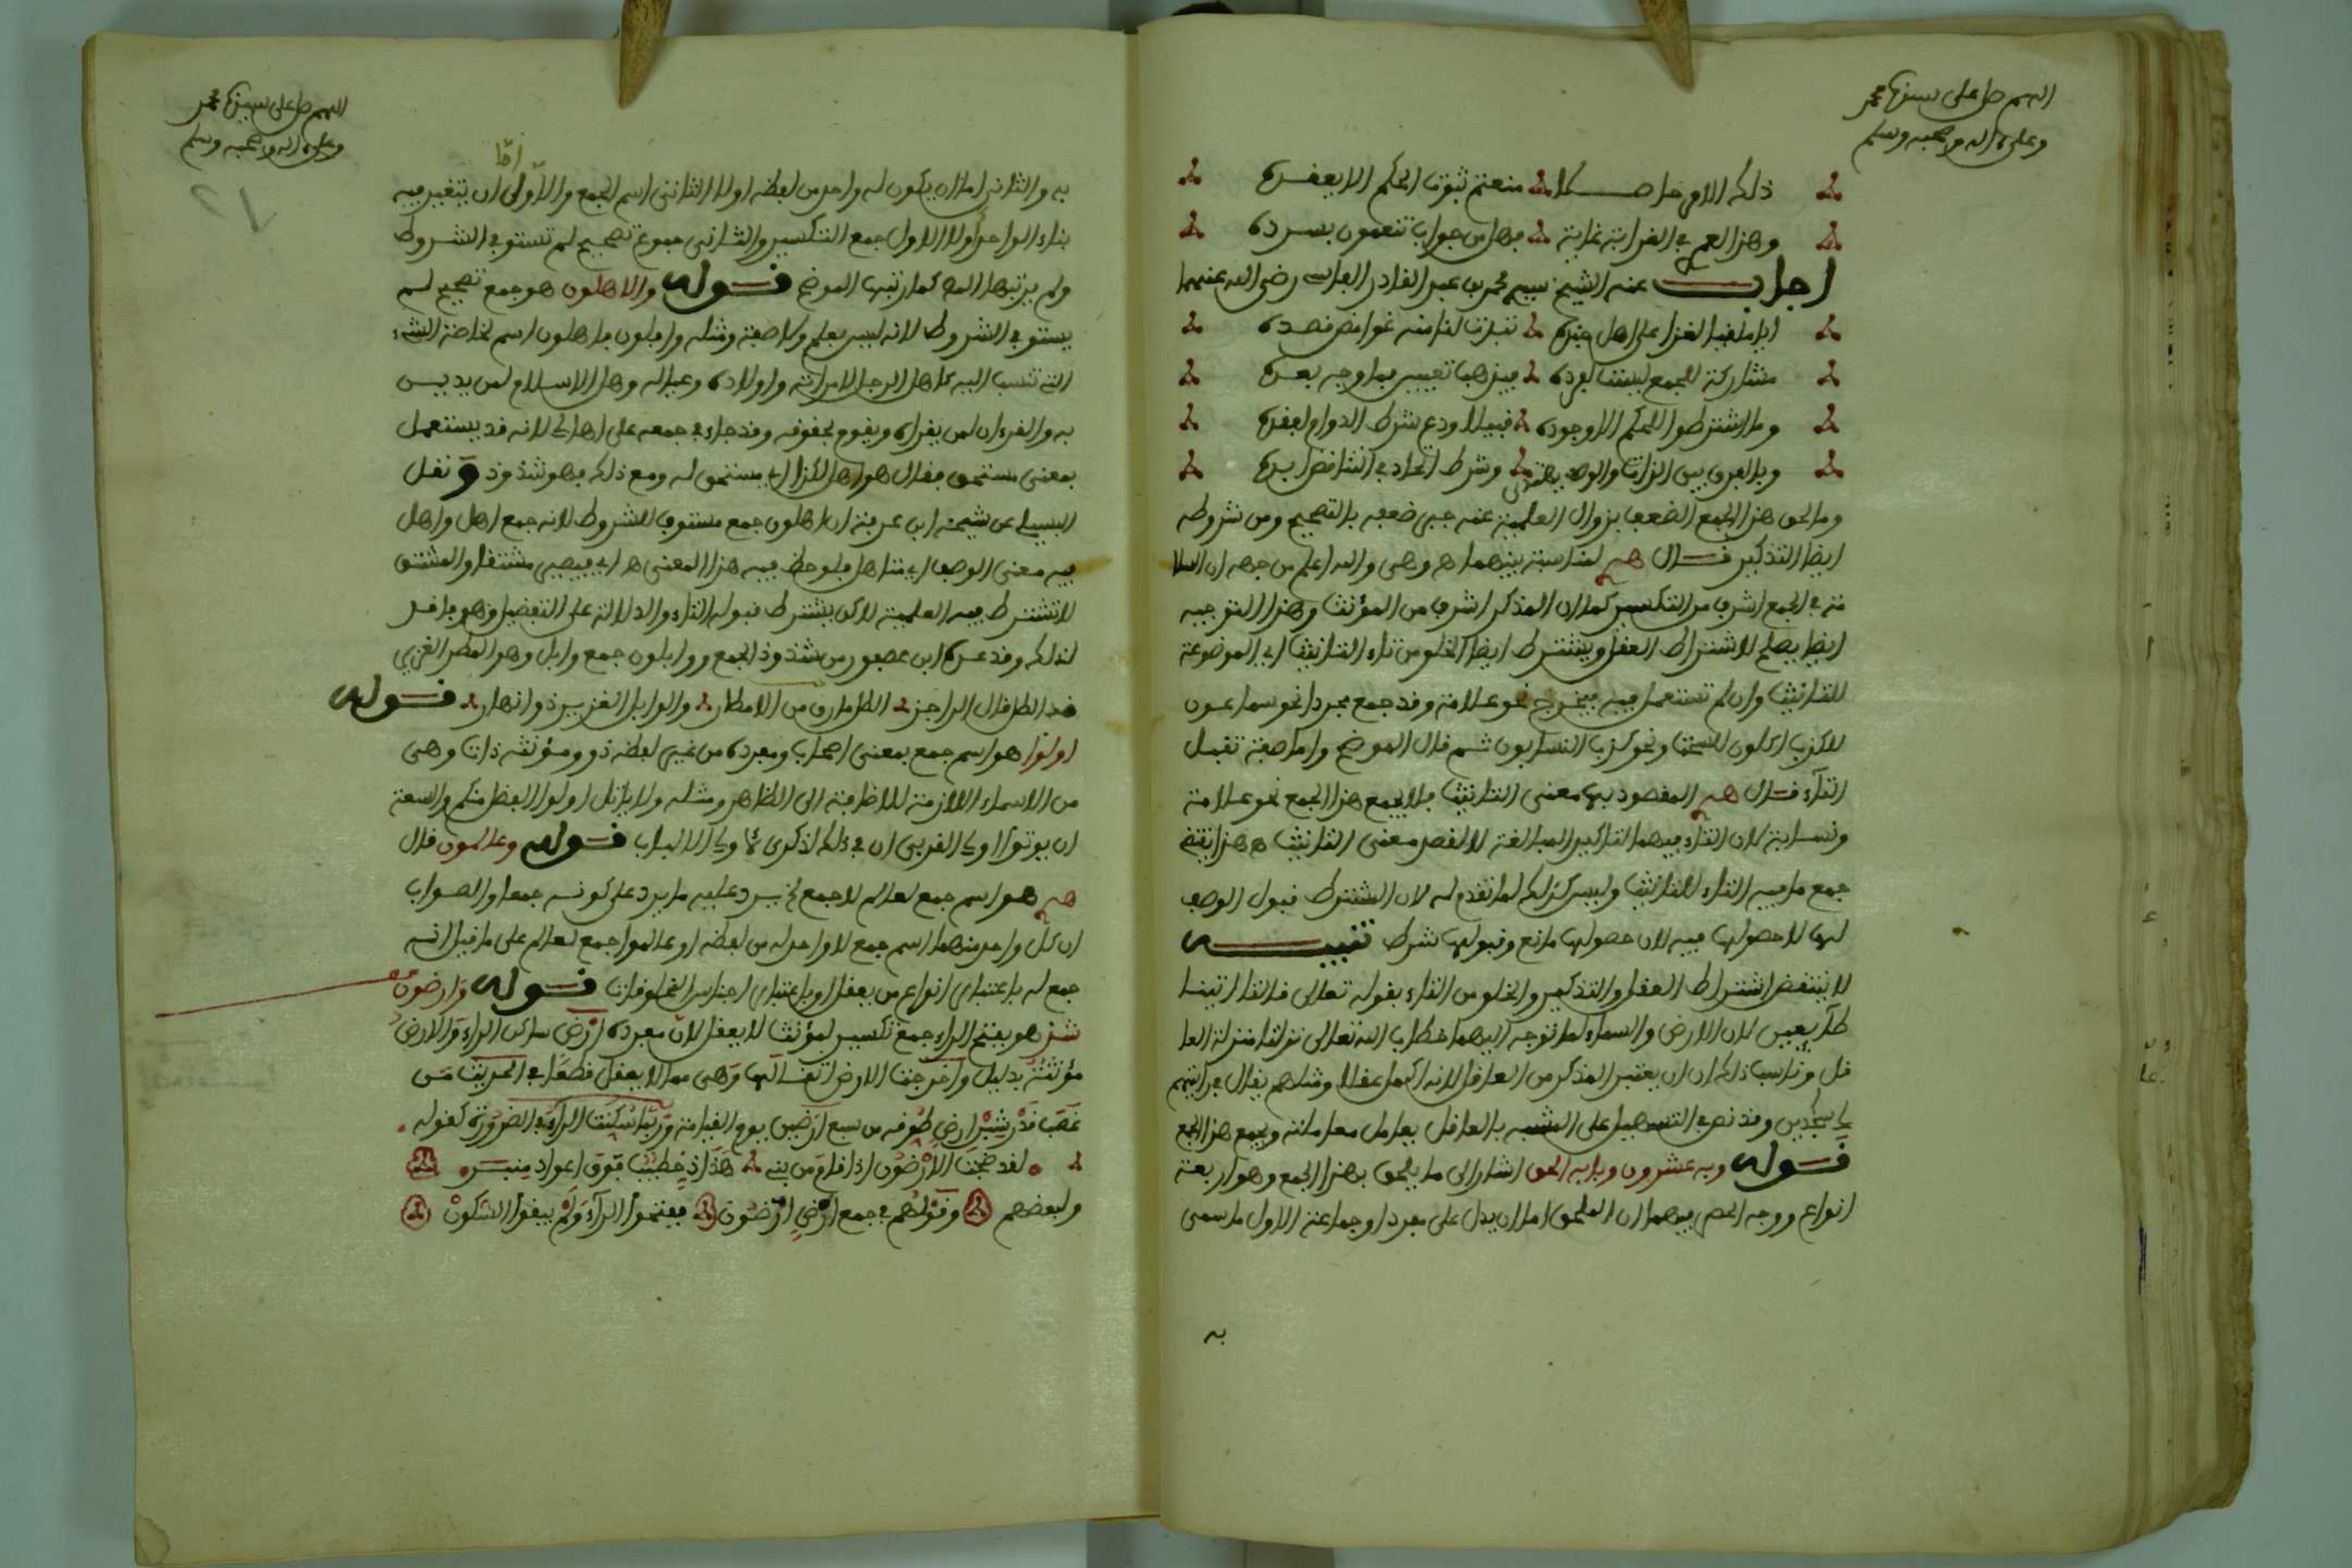 اللهم صل على سيدنا محمد
وعلى ءاله وصحبه وسلم
وهذا لعمري في الغرابة غاية فهل من جواب تنعمون بسرده
اجاب عنه الشيخ سيدي محمد بن عبد القادر الفاسي رضي الله عنهما
مشاركة للجمع ليست لفرده
وما اشترطوا للحكم الا وجوده
وما لحق هذا الجمع الضعف بزوال العلمية عنه جبر ضعفه بالتصحيح ومن شروطه
ايضا التذكير قال لمناسبة بينهما هـ وهي والله اعلم من جهة ان السلا
مة في الجمع اشرف من التكسير كما ان المذكر اشرف من المؤنث وهذا التوجيه
ايضا يصلح لاشتراط العقل ويشترط ايضا الخلو من تاء التانيث اي الموضوعة
للتانيث وان لم تستعمل فيه فيخرج نحو علامة وقد جمع مجردا نحو سماعون
للكذب اكالون للسحت ونحو كذب النسابون ثم قال الموضح واما صفة تقبل
التاء قال المقصود بها معنى التانيث فلا يجمع هذا الجمع نحو علامة
ونسابة لان التاء فيهما لتاكيد المبالغة لا لقصد معنى التانيث هـ
جمع ما فيه التاء للتانيث وليس كذلك لما تقدم له لان المشترط قبول الوصف
لها لا حصولها فيه لان حصولها مانع وقبولها شرط تنبيه
لا ينتقض اشتراط العقل والتذكير والخلو من التاء بقوله تعالى قالتا اتينا
طائعين لان الارض والسماء لما توجه اليهما خطاب الله تعالى نزلتا منزلة العا
قل وناسب ذلك ان يعتبر المذكر من العاقل لانه اكمل عقلا ومثلهم يقال في رايتهم
لي ساجدين وقد نص في التسهيل على المشبه بالعاقل يعامل معاملته ويجمع هذا الجمع
قوله وبه عشرون وبابه الحق اشار الى ما يلحق بهذا الجمع وهو اربعة
انواع ووجه الحصر فيهما ان الملحق اما ان يدل على مفرد او جماعة الاول ما سمى
به
اللهم صل على سيدنا محمد
وعلى ءاله وصحبه وسلم
12
به والثاني اما ان يكون له واحد من لفظه او لا الثاني اسم الجمع والاول اما ان يتغير فيه
بناء الواحد او لا الاول جمع التكسير والثاني جموع تصحيح لم تستوف الشروط
ولم يرتبها المص كما رتبها الموضح قوله والاهلون هو جمع تصحيح لم
يستوف الشروط لانه ليس بعلم ولا صفة ومثله وابلون فاهلون اسم لخاصة الشيء
التي تنسب اليه كاهل الرجل لامراته واولاده وعياله واهل الاسلام لمن يدين
به والقرءان لمن يقراه ويقوم بحقوقه وقد جاء في جمعه على اهالي لانه قد يستعمل
بمعنى مستحق فقال هو اهل لكذا اي مستحق له ومع ذلك فهو شذوذ ونقل
البسيلي عن شيخه ابن عرفة ان اهلون جمع مستوف للشروط لانه جمع اهل واهل
فيه معنى الوصف اي متاهل فلوحظ فيه هذا المعنى هـ اي فيصير مشتقا والمشتق
لا تشترط فيه العلمية لاكن يشترط قبوله التاء والدلالة على التفضيل وهو قابل
لذلك وقد عده ابن عصفور من شذوذ الجمع ووابلون جمع وابل وهو المطر الغزير
ضد الطل قال الراجز الطل مارق من الامطار والوابل الغزير ذو انهار قوله
اولوا هو اسم جمع بمعنى اصحاب ومفرده من غير لفظه ذو ومؤنثه ذات وهي
من الاسماء اللازمة للاضافة الى الظاهر ومثله ولا ياتل اولوا الفضل منكم والسعة
ان يوتوا اولي القربى ان في ذلك لذكرى لاولي الالباب قوله وعالمون قال
هو اسم جمع لعالم لا جمع ويرد عليه ما يرد على كونه جمعا والصواب
ان كل واحد منهما اسم جمع لا واحد له من لفظه او عالموا جمع لعالم على ما قيل انه
جمع له باعتبار انواع من يعقل او باعتبار اجناس المخلوقات قوله وارضون
شذ هو بفتح الراء جمع تكسير لمؤنث لا يعقل لان مفرده ارض ساكن الراء والارض
مؤنثة بدليل واخرجت الارض اثقالها وهي مما لا يعقل قطعا في الحديث من
غصب قدر شبر ارض طوقه من سبع ارضين يوم القيامة وربما سكنت الراء في الضرورة كقوله
لقد ضجت الارضون اذ قام من بني هداد خطيب فوق اعواد منبر
ولبعضهم وقولهم في جمع ارض ارضون ففتحوا الراء ولم يبقوا السكون